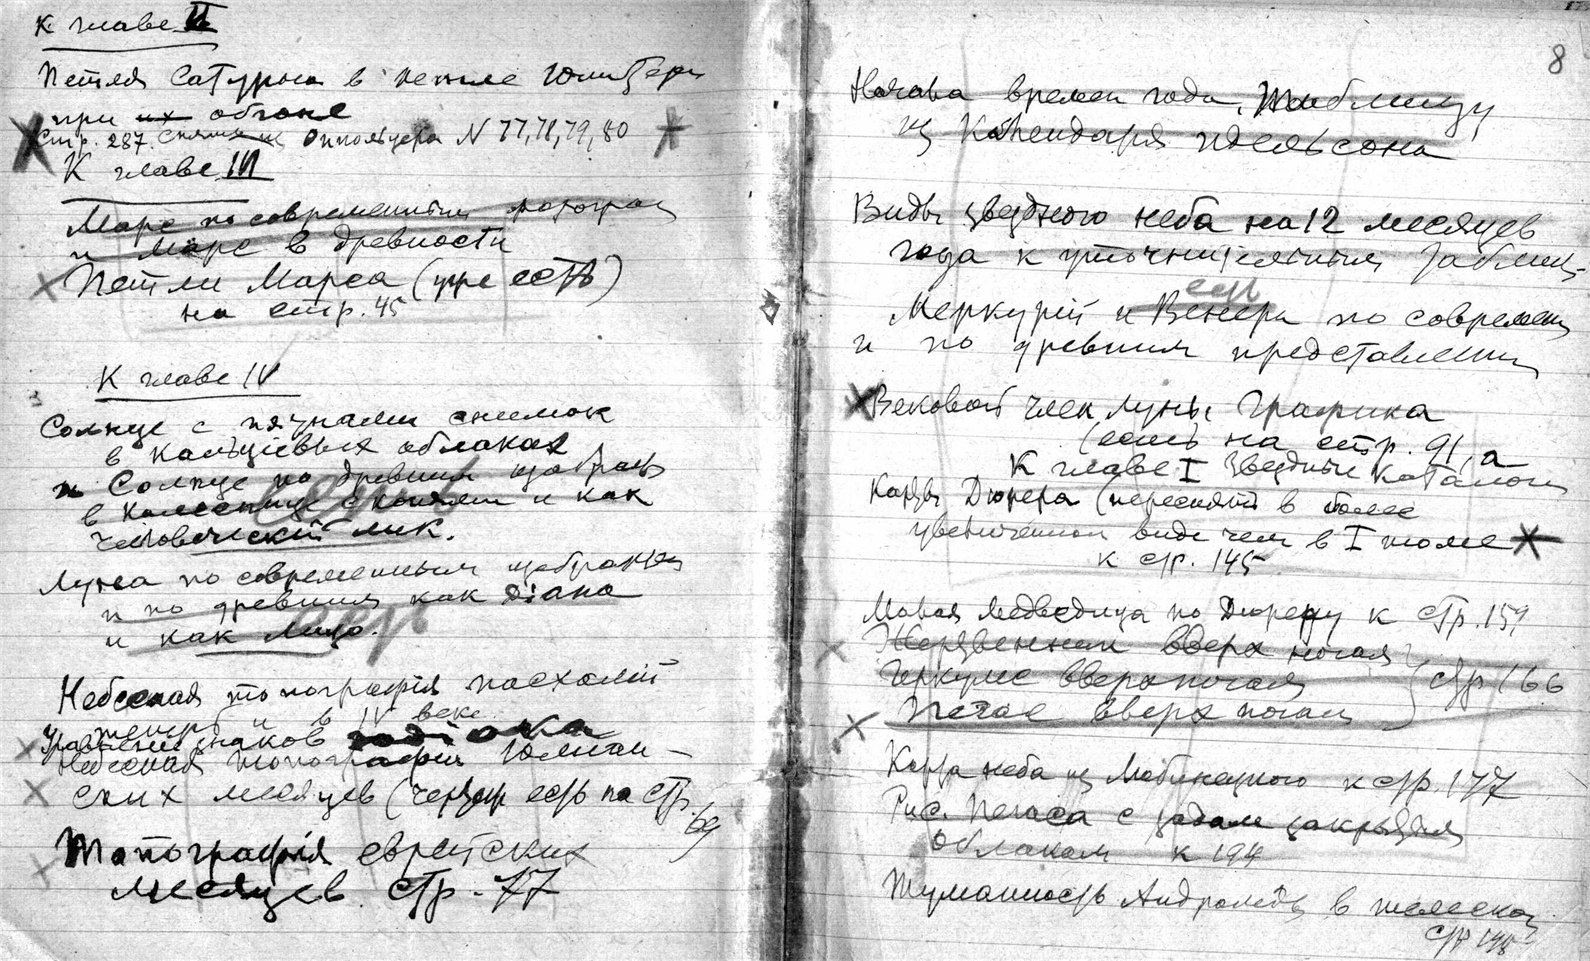 К главе II
Петля Сатурна в петле Юпитера
при их обгоне
Стр. 287. Оппольцера N 77, 78, 79, 80
К главе III
Марс по современным
и Марс в древности
Петли Марса (уже есть)
на стр. 45
К главе IV
Солнце с пятнами снимок
в кальцiевых облаках
и Солнце по древним
в колеснице с конями и как
человѣческiй лик.
Луна по современным
и по древним как Дiана
и как лицо.
Небесная топографiя пасхалiй
в IV веке
знаков зодiака
Небесная топографiя Юлиан-
ских месяцев (чертеж есть на стр. 69
Топографiя еврейских
месяцев стр. 77
8
Начала времен года. Таблицу
из Календаря Идельсона
Виды звездного неба на 12 месяцев
года к таблиц.
есть
Меркурiй и Венера по современ
и по древним представлениям
Вековой член луны Графика
(есть на стр. 91, а
К главе I Звездные каталоги
Карты Дюрера (переснять в более
увеличенном виде чем в I томе
к стр. 145
Малая Медведица по Дюреру к стр. 159
Жертвенник вверх ногами
Геркулес вверх ногами } стр 166
Пегас вверх ногами
Карта неба из к стр. 177
Рис. Пегаса с задом закрытым
облаком к 194
Туманность Андромеды в телескоп
стр 198